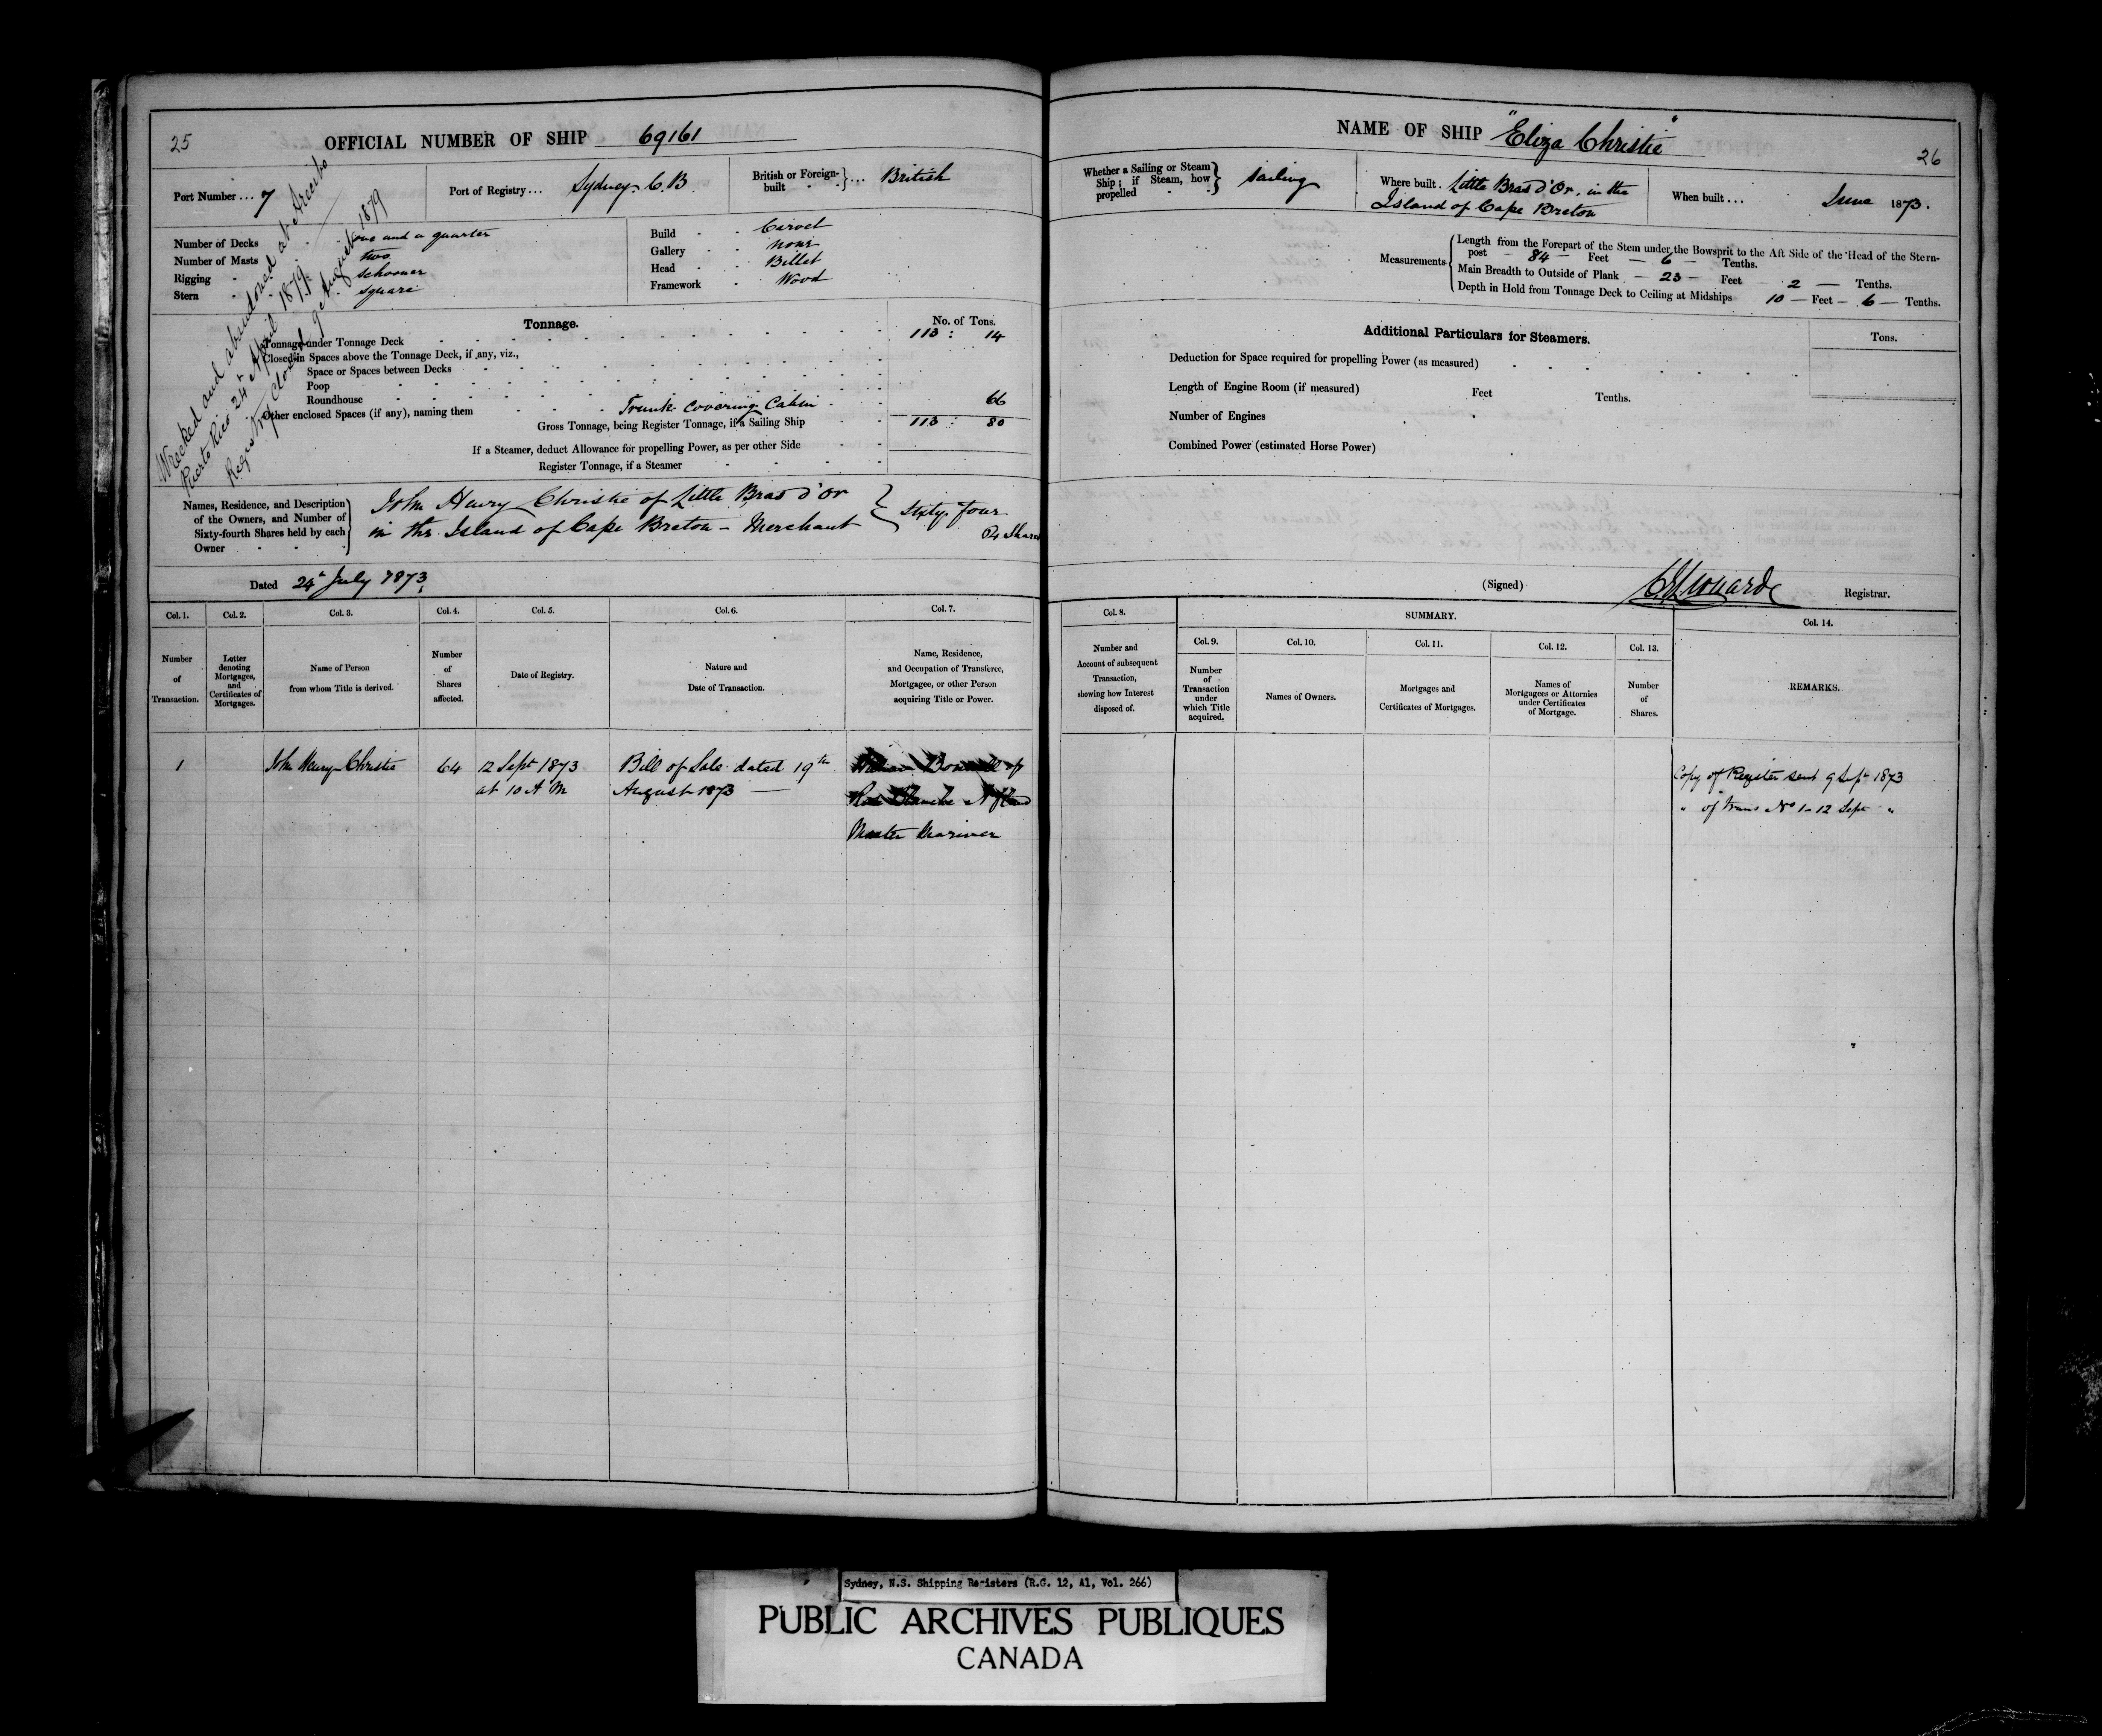 25
OFFICIAL NUMBER OF SHIP 69161
Port Number ... 7
Port of Registry ... Sydney. C. B
British or Foreign-built } ... British
Wrecked and abandoned at Arecibo
Puerto Rico 24th April 1879.
Registry Closed 9 August 1879
Number of Decks one and a quarter
Number of Masts two
Rigging Schooner
Stern square
Build Carvel
Gallery none
Head Billet
Framework Wood
Tonnage. No. of Tons.
Tonnage under Tonnage Deck 113 : 14
Closed-in Spaces above the Tonnage Deck, if any, viz.,
Space or Spaces between Decks
Poop
Roundhouse
Other enclosed Spaces (if any), naming them Trunk covering Cabin 66
Gross Tonnage, being Register Tonnage, if a Sailing Ship 113 : 80
If a Steamer, deduct Allowance for propelling Power, as per other Side
Register Tonnage, if a Steamer
Names, Residence, and Description
of the Owners, and Number of
Sixty-fourth Shares held by each
Owner
John Henry Christie of Little Bras d'Or } Sixty four
in the Island of Cape Breton - Merchant Shares
Dated 24th July 1873.
Col. 1. Col. 2. Col. 3. Col. 4. Col. 5. Col. 6. Col. 7.
Number of Transaction.
Letter denoting Mortgages, and Certificates of Mortgages.
Name of Person from whom Title is derived.
Number of Shares affected.
Date of Registry.
Nature and Date of Transaction.
Name, Residence, and Occupation of Transferee, Mortgagee, or other Person acquiring Title or Power.
1 John Henry Christie 64 12 Sept 1873 Bill of Sale dated 19th
at 10 A M August 1873
Master Mariner
NAME OF SHIP "Eliza Christie"
26
Whether a Sailing or Steam Ship; if Steam, how propelled } Sailing
Where built. Little Bras d'Or. in the
Island of Cape Breton
When built ... June 1873.
Measurements
Length from the Forepart of the Stem under the Bowsprit to the Aft Side of the Head of the Stern-
post - 84 - Feet - 6 - Tenths.
Main Breadth to Outside of Plank - 23 - Feet 2 - Tenths.
Depth in Hold from Tonnage Deck to Ceiling at Midships 10 - Feet - 6 - Tenths.
Additional Particulars for Steamers. Tons.
Deduction for Space required for propelling Power (as measured)
Length of Engine Room (if measured) Feet Tenths.
Number of Engines
Combined Power (estimated Horse Power)
(Signed) Registrar.
Col. 8. SUMMARY. Col. 14.
Col. 9. Col. 10. Col. 11. Col. 12. Col. 13.
Number and Account of subsequent Transaction, showing how Interest disposed of.
Number of Transaction under which Title acquired.
Names of Owners.
Mortgages and Certificates of Mortgages.
Names of Mortgagees or Attornies under Certificates of Mortgage.
Number of Shares.
REMARKS.
Copy of Register sent 9 Sept 1873
" of Trans No 1 - 12 Sept "
Sydney, N.S. Shipping Registers (R.G. 12, A1, Vol. 266)
PUBLIC ARCHIVES PUBLIQUES
CANADA